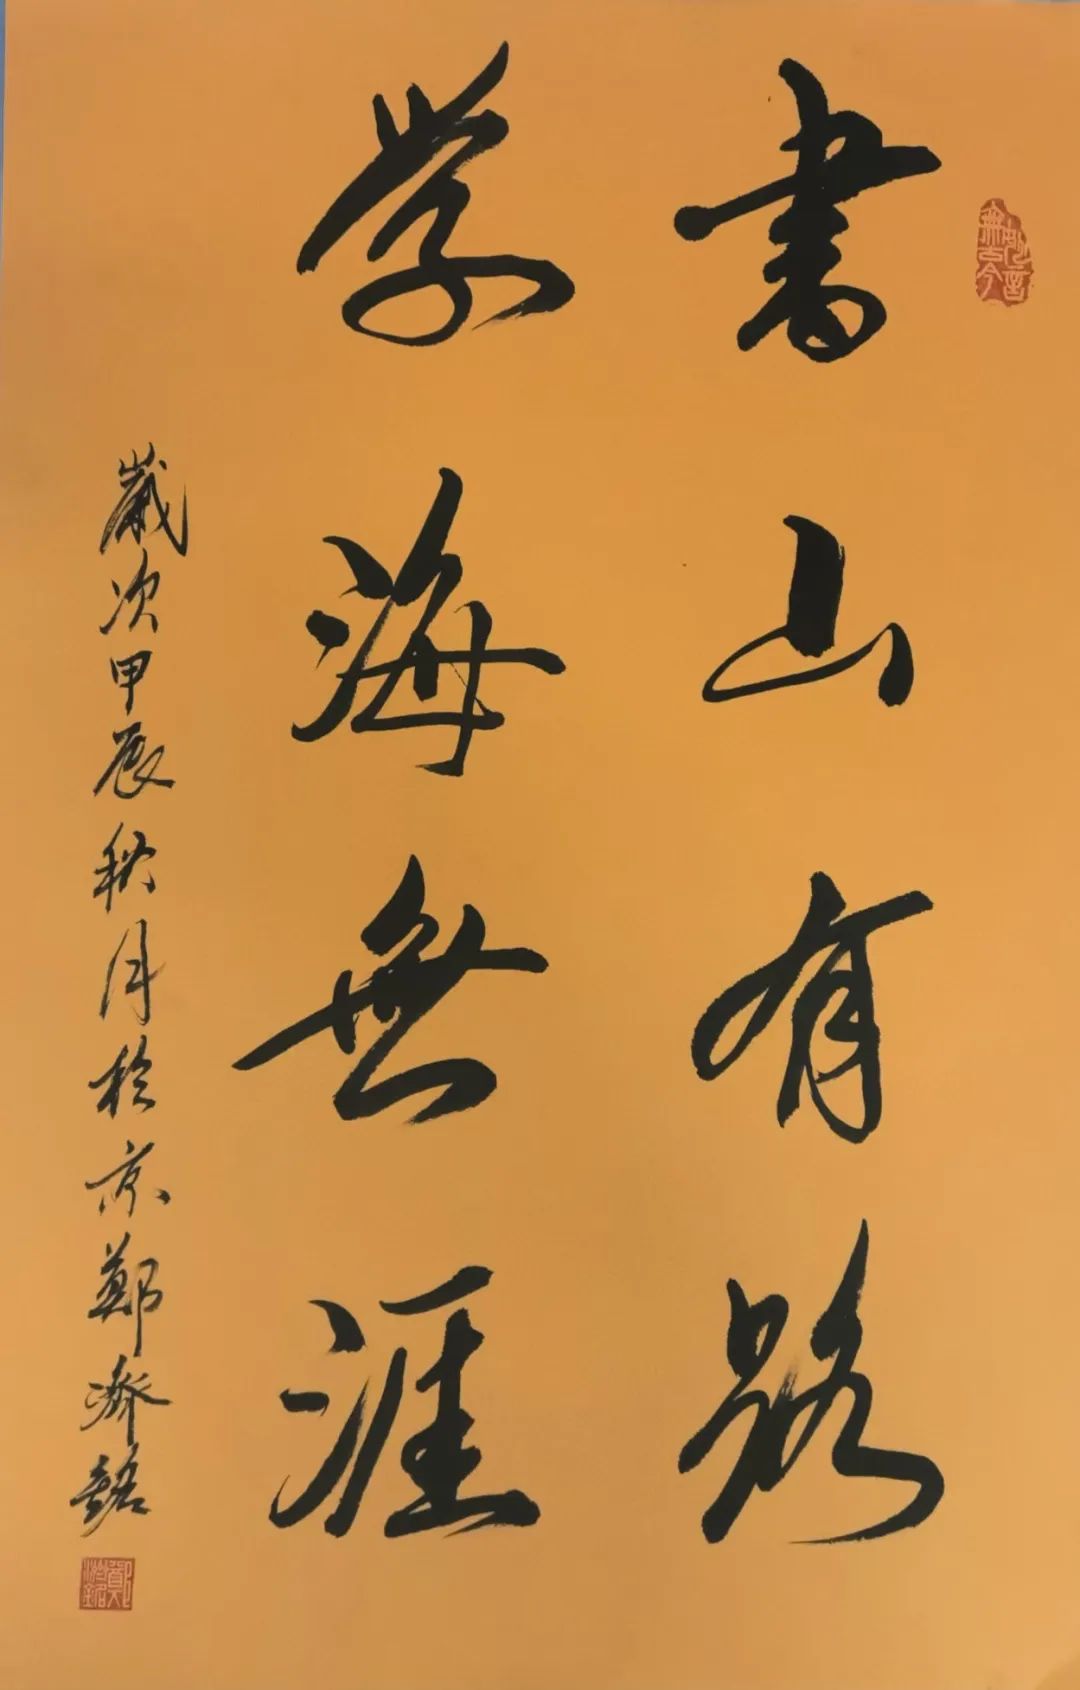 書山有路
学海無涯
歲次甲辰秋月於京鄭济銘